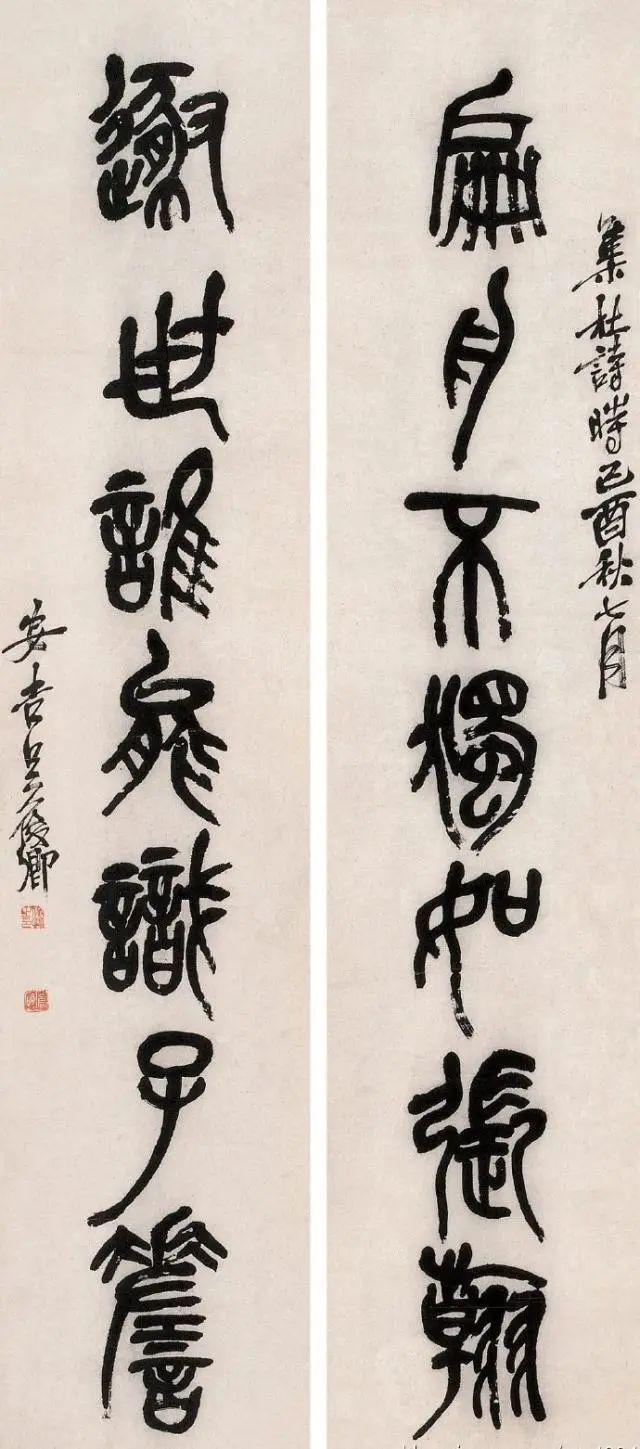 集杜詩時己酉秋七月
扁舟不獨如張翰
遯世誰能識子
安吉吳俊卿